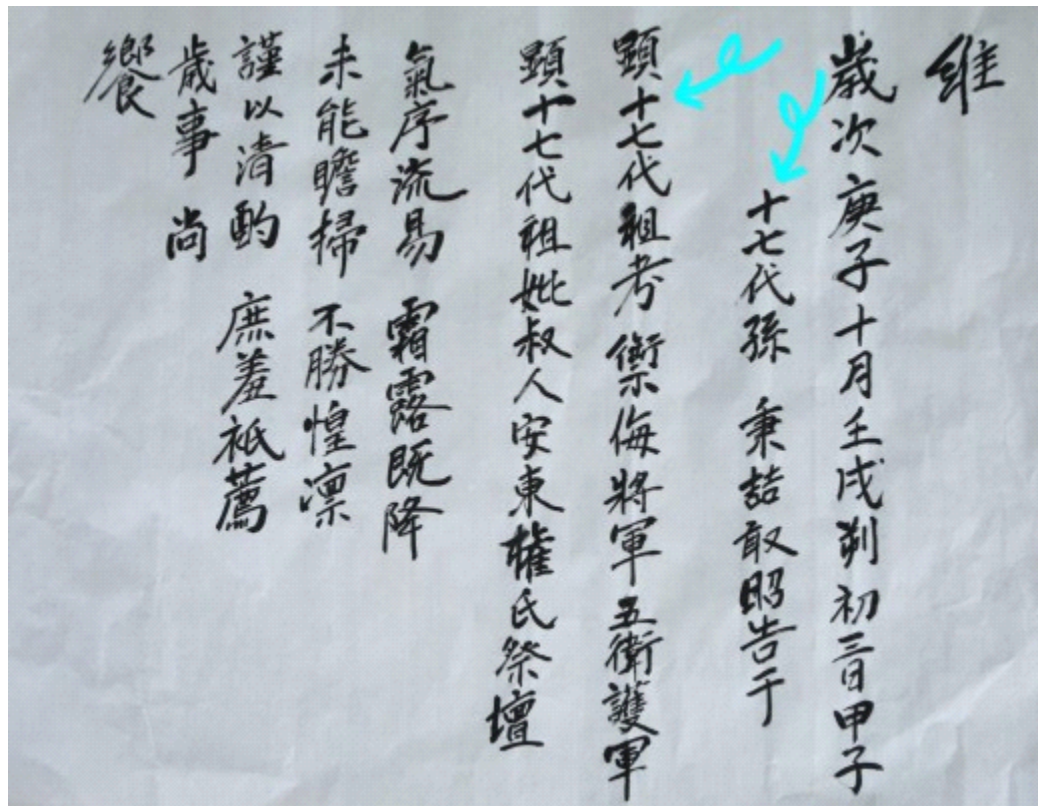 維
歲次 庚子 十月 壬戌 朔 初三日 甲子
十七代孫 秉喆 敢昭告于
顯十七代祖考 禦侮將軍 五衛護軍
顯十七代祖妣 叔人 安東權氏 祭壇
氣序流易 霜露旣降
未能瞻掃 不勝惶凛
謹以淸酌 庶羞祗薦
歲事 尚
饗